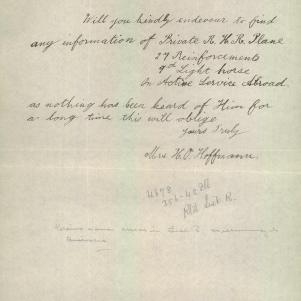 Will you kindly endeavour to find
any information of Private R. H. R. Plane
27 Reinforcements
9th Light horse
On Active Service Abroad
as nothing has been heard of Him for
a long time this will oblige
yours Truly
Mrs H. O. Hoffmann.
4678